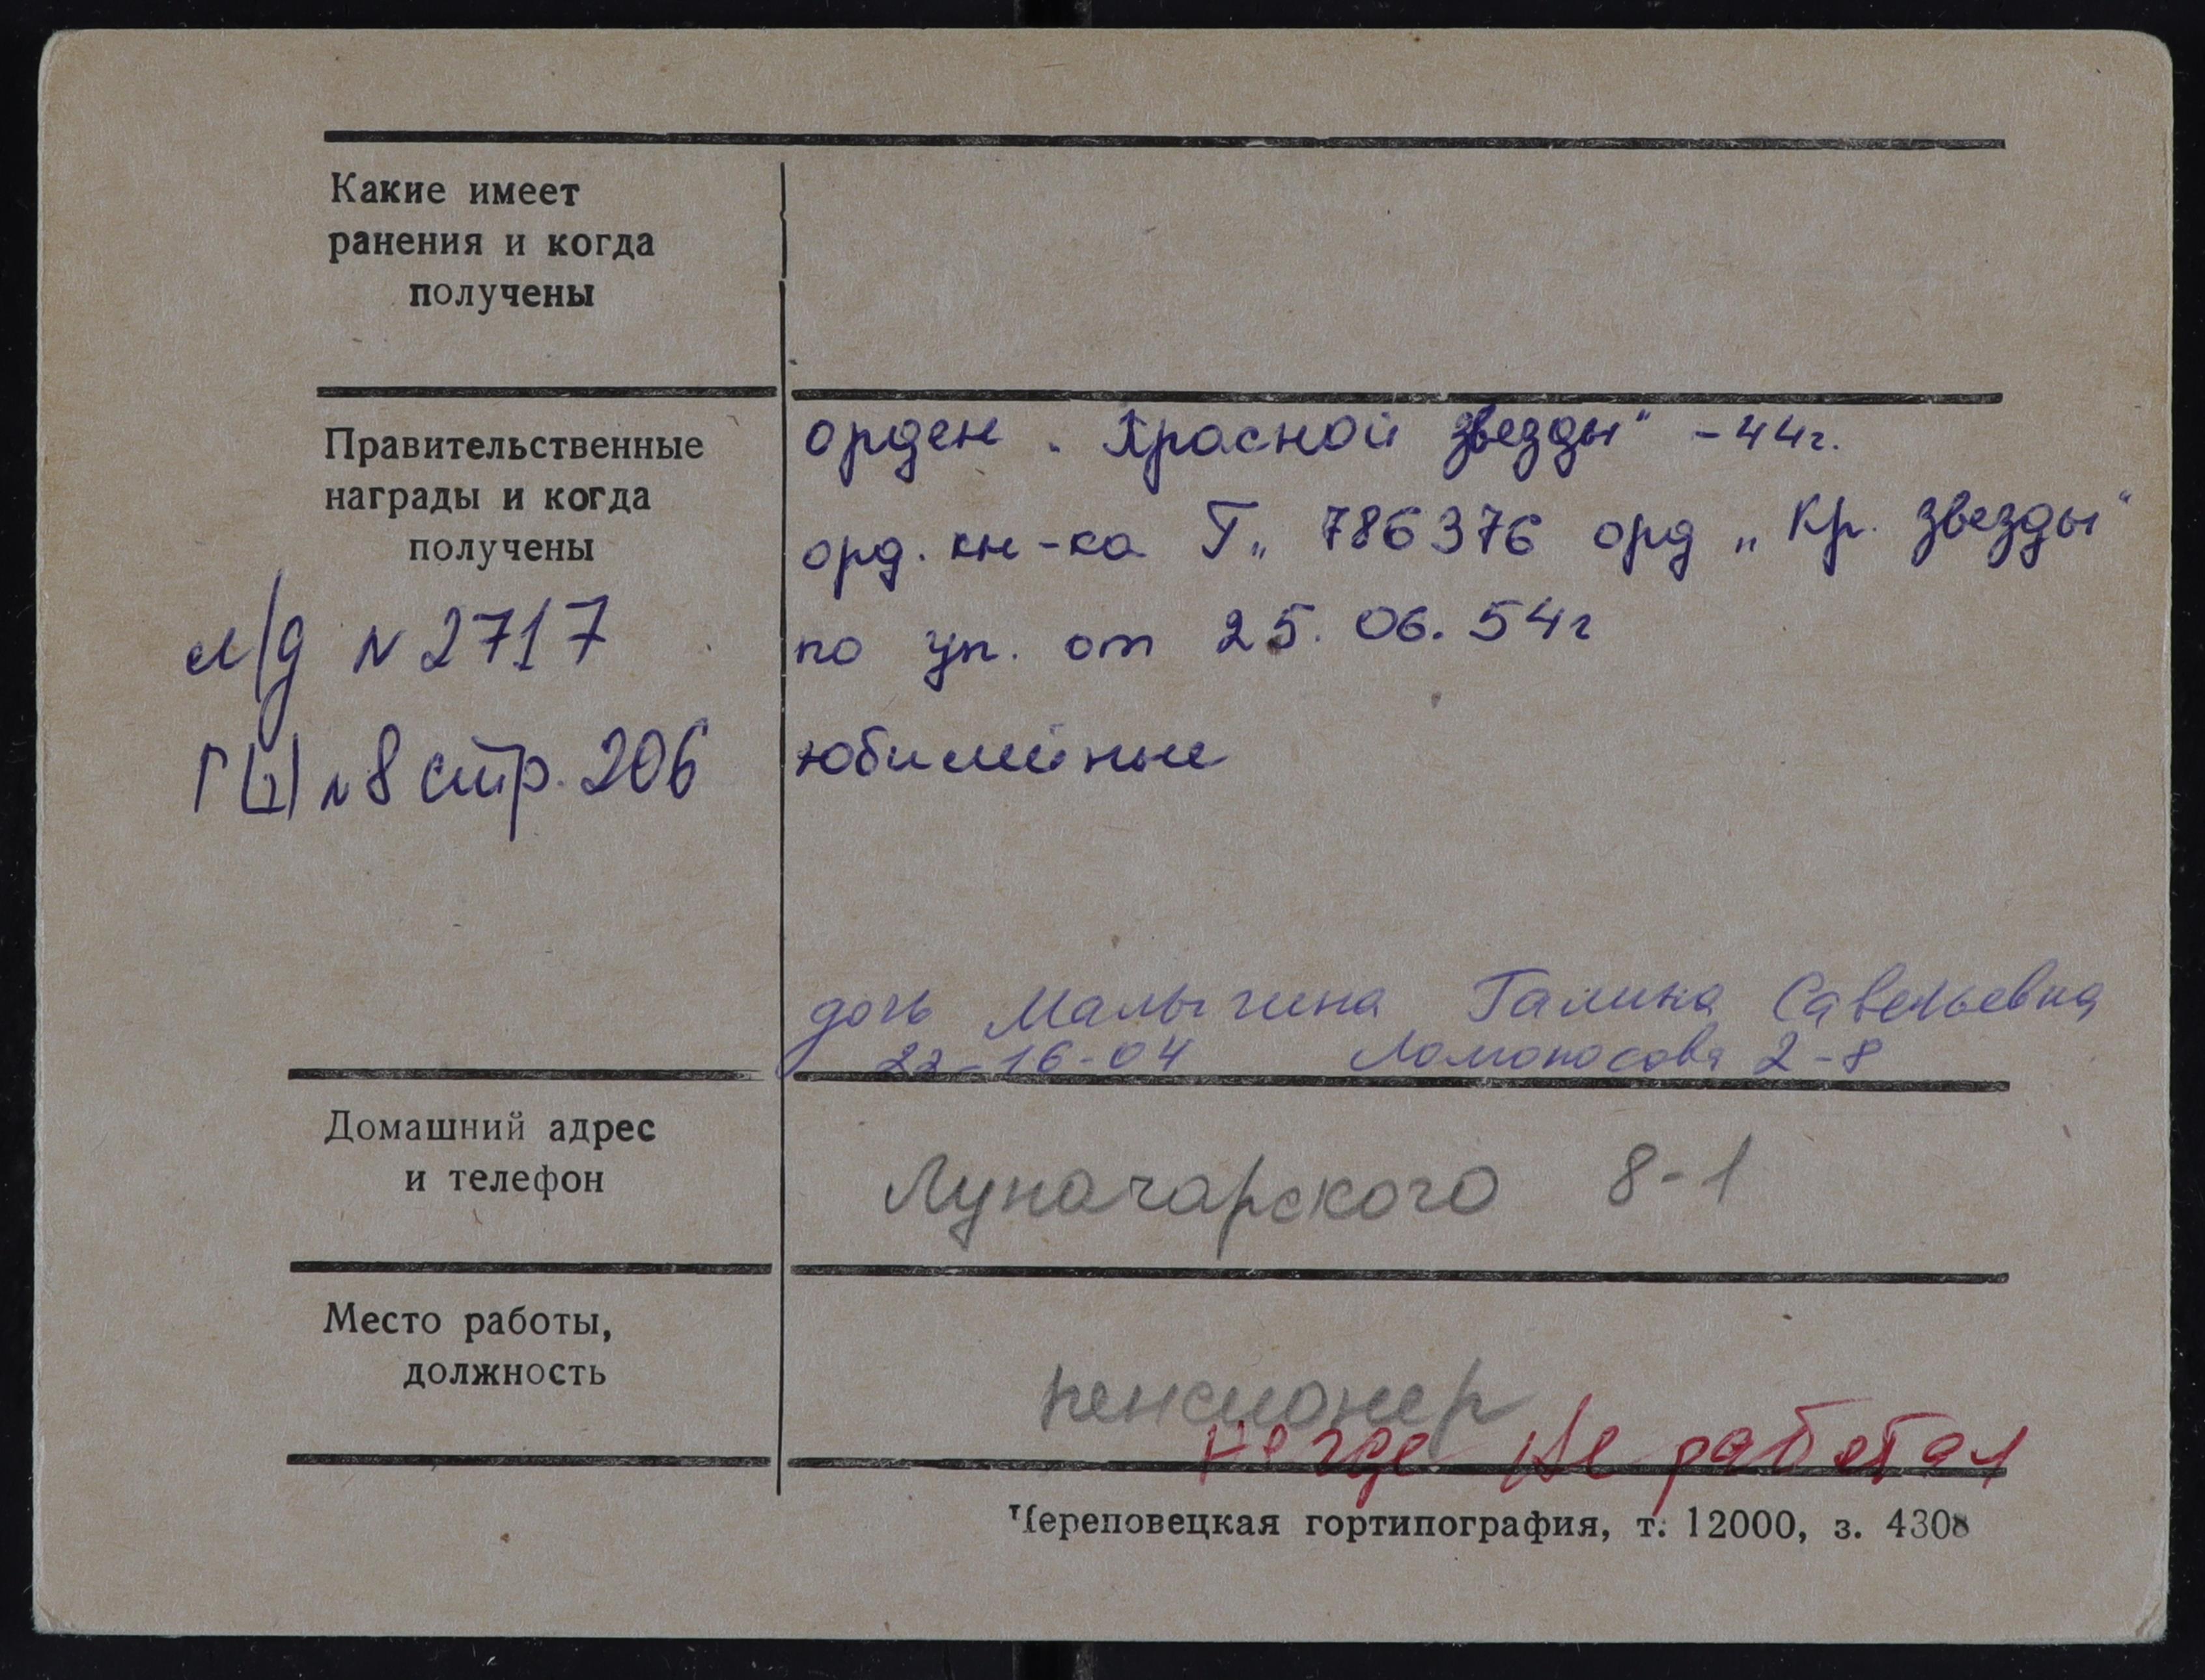 Какие имеет
ранения и когда
получены
Правительственные
награды и когда
получены
орден „Красной звезды“ - 44г.
орд. кн-ка Г„ 786376 орд „Кр. звезды“
по ук. от 25.06.54г
юбилейные
л/д N 2717
N 8 стр. 206
дочь Малыгина Галина Савельевна
22-16-04 Ломоносова 2-8
Домашний адрес
и телефон
Луначарского 8-1
Место работы,
должность
пенсионер
не где не работал
Череповецкая гортипография, т. 12000, з. 4308